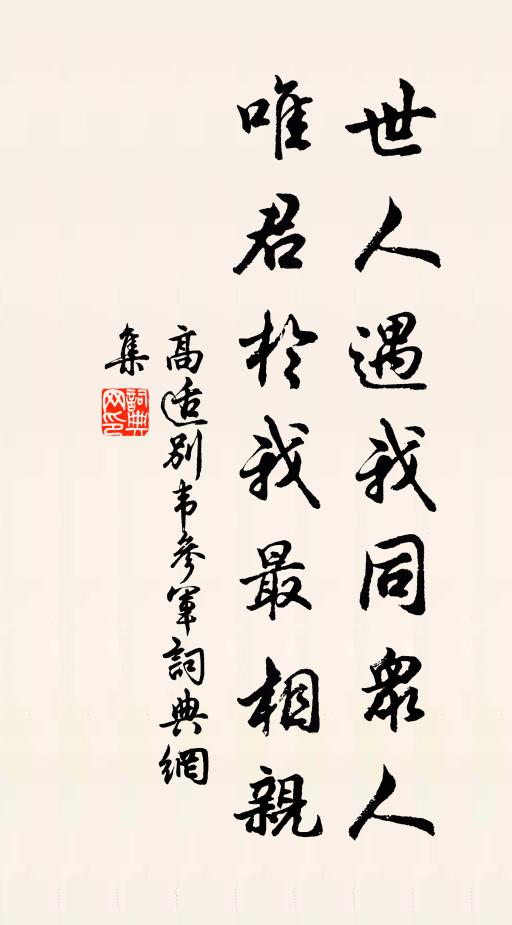 世人遇我同衆人
唯君於我最相親
高适别韦參軍詞典網
集
詞典
网印